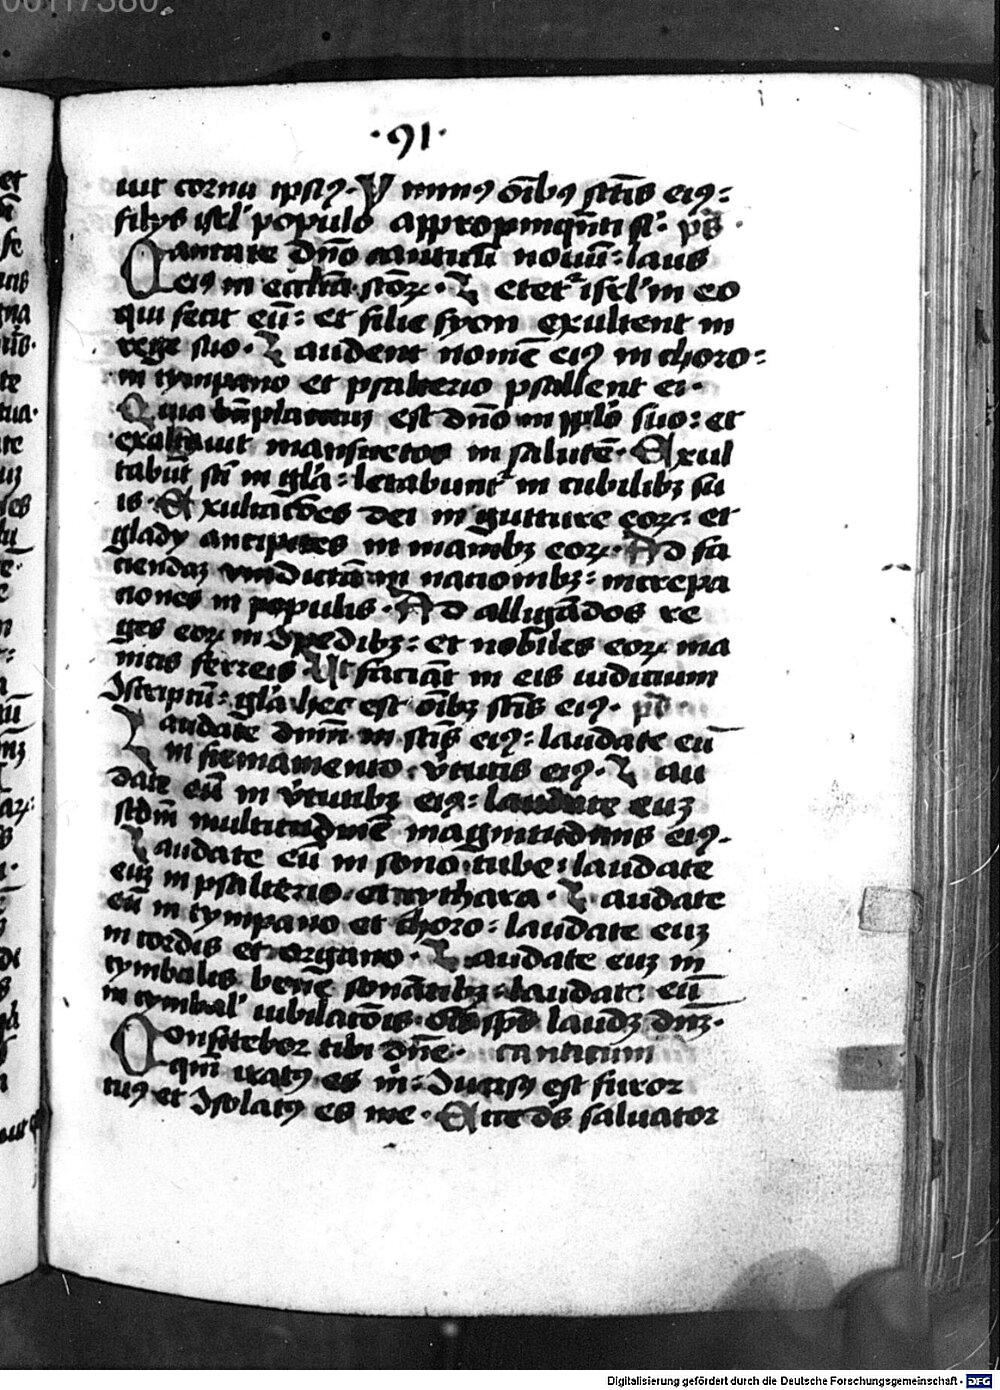 ·91·
uit cornu ipsiꝰ· Ymnꝰ oibꝰ sctis eiꝰ:
filijs isrl' populo appropinqnti s'· ps·
Cantate dno canticu nouu: laus
eiꝰ in ecclia scoꝝ· Letet' isrl' in eo
qui fecit eu: et filie syon exultent in
rege suo· Laudent nome eiꝰ in choro:
in tympano et psalterio psallent ei·
Quia bnplacitu est dno in pplo suo: et
exaltauit mansuetos in salute· Exul
tabut sci in gla: letabunt' in cubilibꝫ su
is· Exultacoes dei in gutture eoꝝ: et
gladij ancipites in manibꝫ eoꝝ· Ad fa
ciendaꝫ vindictam in nacionibꝫ: increpa
ciones in populis· Ad alligados re
ges eoꝝ in 9pedibꝫ: et nobiles eoꝝ ma
nicis ferreis Ut faciat in eis iudicium
9scriptu: gla hec est oibꝫ sctis eiꝰ· ps·
Laudate dnm in sctis eiꝰ: laudate eu
in firmamento virtutis eiꝰ· Lau
date eu in virtutibꝫ eiꝰ: laudate euꝫ
scdm multitudine magnitudinis eiꝰ·
Laudate eu in sono tube: laudate
euꝫ in psalterio et cythara· Laudate
eu in tympano et choro: laudate euꝫ
in cordis et organo· Laudate euꝫ in
cymbalis bene sonatibꝫ: laudate eu
in cymbal' iubilacois· ois sps laudꝫ dnꝫ·
Confitebor tibi dne· canticum
qm iratꝰ es m: 9uersꝰ est furor
tuꝰ et 9solatꝰ es me· Ecce ds saluator
Digitalisierung gefördert durch die Deutsche Forschungsgemeinschaft - DFG